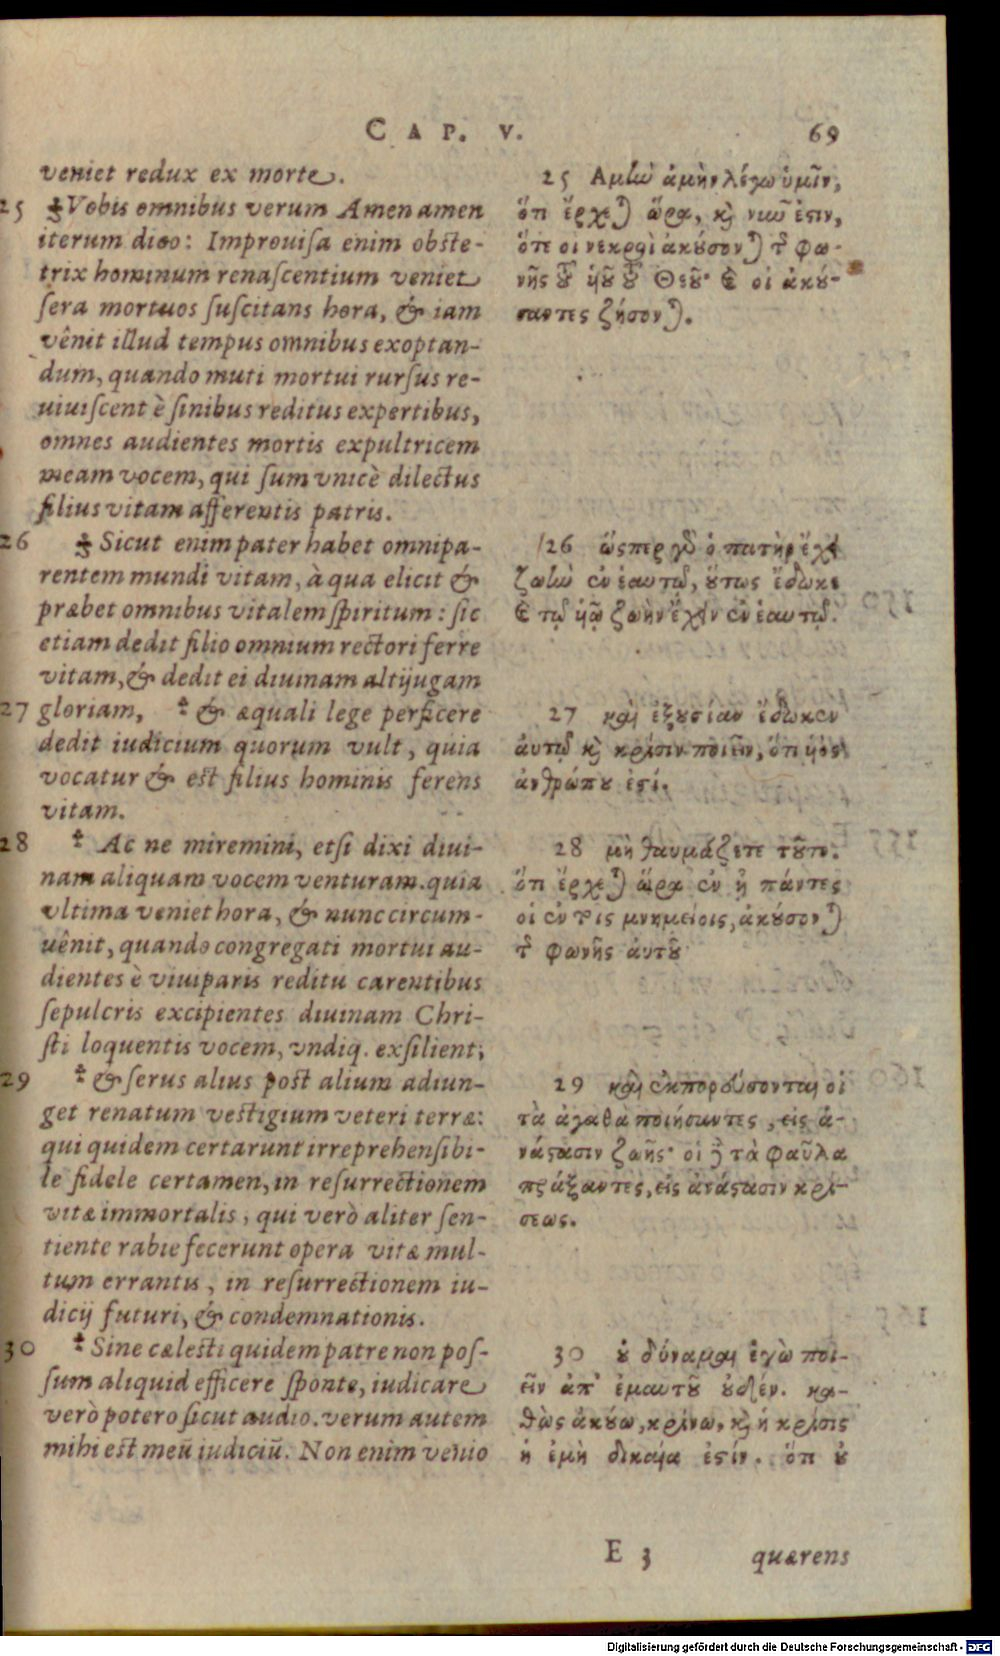 CAP. V. 69
veniet redux ex morte.
25 Vobis omnibus verum Amen amen
iterum dico: Improuiſa enim obſte-
trix hominum renaſcentium veniet
ſera mortuos ſuſcitans hora, & iam
vênit illud tempus omnibus exoptan-
dum, quando muti mortui rurſus re-
uiuiſcent è ſinibus reditus expertibus,
omnes audientes mortis expultricem
meam vocem, qui ſum vnicè dilectus
filius vitam afferentis patris.
26 Sicut enim pater habet omnipa-
rentem mundi vitam, à qua elicit &
præbet omnibus vitalem ſpiritum: ſic
etiam dedit filio omnium rectori ferre
vitam, & dedit ei diuinam altijugam
27 gloriam, & æquali lege perficere
dedit iudicium quorum vult, quia
vocatur & est filius hominis ferens
vitam.
28 Ac ne miremini, etſi dixi diui-
nam aliquam vocem venturam. quia
vltima veniet hora, & nunc circum-
uênit, quando congregati mortui au-
dientes è viuiparis reditu carentibus
ſepulcris excipientes diuinam Chri-
ſti loquentis vocem, vndiq. exſilient;
29 & ſerus alius post alium adiun-
get renatum veſtigium veteri terræ:
qui quidem certarunt irreprehenſibi-
le fidele certamen, in reſurrectionem
vitæ immortalis, qui verò aliter ſen-
tiente rabie fecerunt opera vitæ mul-
tum errantis, in reſurrectionem iu-
dicij futuri, & condemnationis.
30 Sine cæleſti quidem patre non poſ-
ſum aliquid efficere ſponte, iudicare
verò potero ſicut audio. verum autem
mihi est meū iudiciū. Non enim venio
25 Αμὼ ἀμὴν λέγω ὑμῖν,
ὅτι ἔρχεται ὥρα, καὶ νιῶ ἐϛιν,
ὅτε οἱ νεκροὶ ἀκούσονται τῆς φω-
νῆς τοῦ ὑιοῦ τοῦ Θεοῦ· καὶ οἱ ἀκού-
σαντες ζήσονται.
26 ὥσπερ γὰρ ὁ πατὴρ ἔχει
ζωὼ ἐν ἑαυτῷ, οὕτως ἔδωκε
καὶ τῷ ὑιῷ ζωὴν ἔχειν ἐν ἑαυτῷ.
27 καὶ ἐξουσίαν ἔδωκεν
αὐτῷ καὶ κρίσιν ποιεῖν, ὅτι ὑιὸς
ἀνθρώπου ἐϛί.
28 μὴ θαυμάζετε τοῦτο.
ὅτι ἔρχεται ὥρα ἐν ᾗ πάντες
οἱ ἐν τοῖς μνημείοις, ἀκούσονται
τῆς φωνῆς αὐτοῦ·
29 καὶ ἐκπορεύσονται οἱ
τὰ ἀγαθὰ ποιήσαντες, εἰς ἀ-
νάϛασιν ζωῆς· οἱ δὲ τὰ φαῦλα
πράξαντες, εἰς ἀνάϛασιν κρί-
σεως.
30 οὐ δύναμαι ἐγὼ ποι-
εῖν ἀπ' ἐμαυτοῦ οὐδέν. κα-
θὼς ἀκούω, κρίνω, καὶ ἡ κρίσις
ἡ ἐμὴ δικαία ἐϛίν. ὅτι οὐ
E 3 quærens
Digitalisierung gefördert durch die Deutsche Forschungsgemeinschaft - DFG